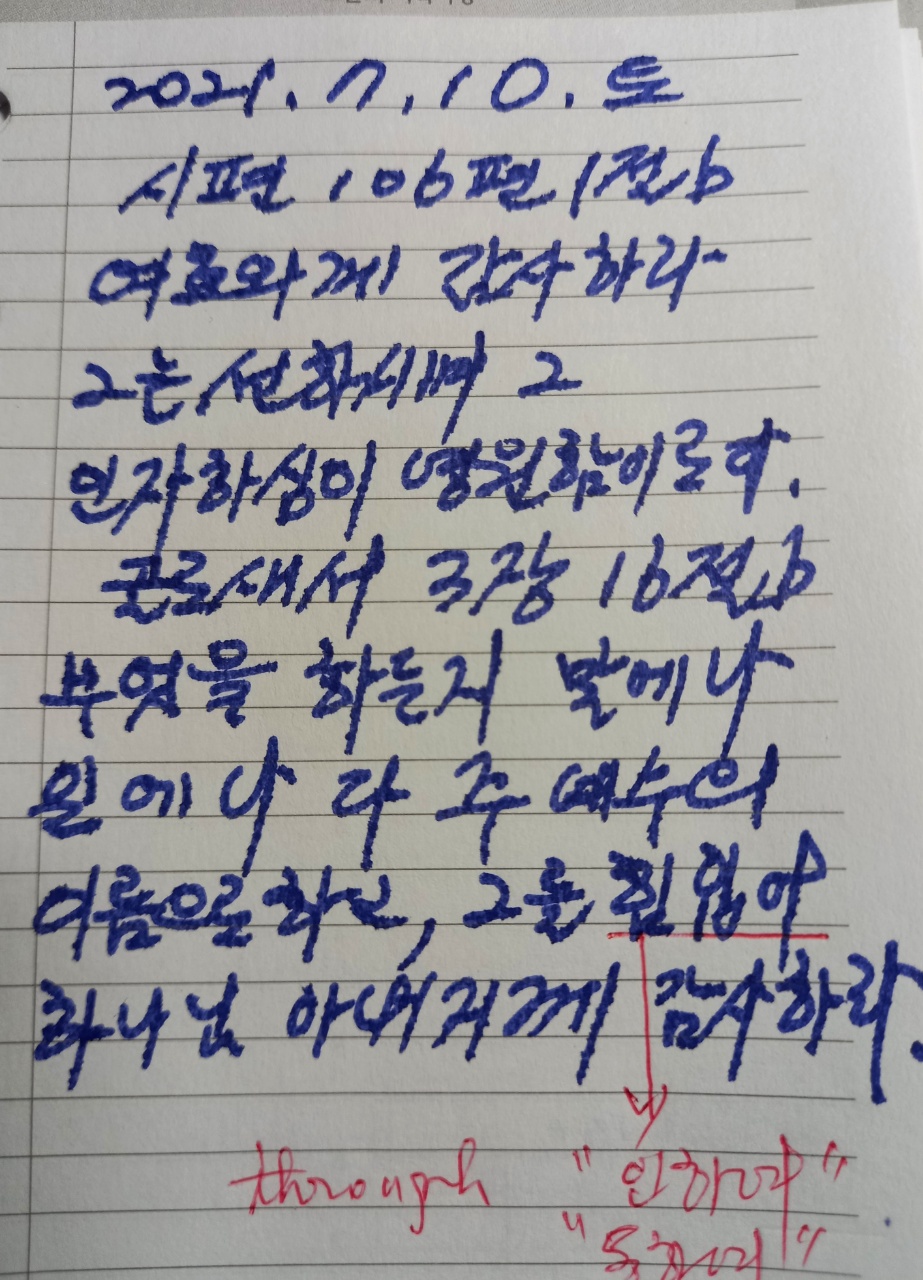 2021. 7. 10. 토
시편 106편 1절b
여호와께 감사하라
그는 선하시며 그
인자하심이 영원함이로다.
골로새서 3장 16절b
무엇을 하든지 말에나
일에나 다 주 예수의
이름으로 하고, 그를 힘입어
하나님 아버지께 감사하라.
through "인하여"
"통하여"